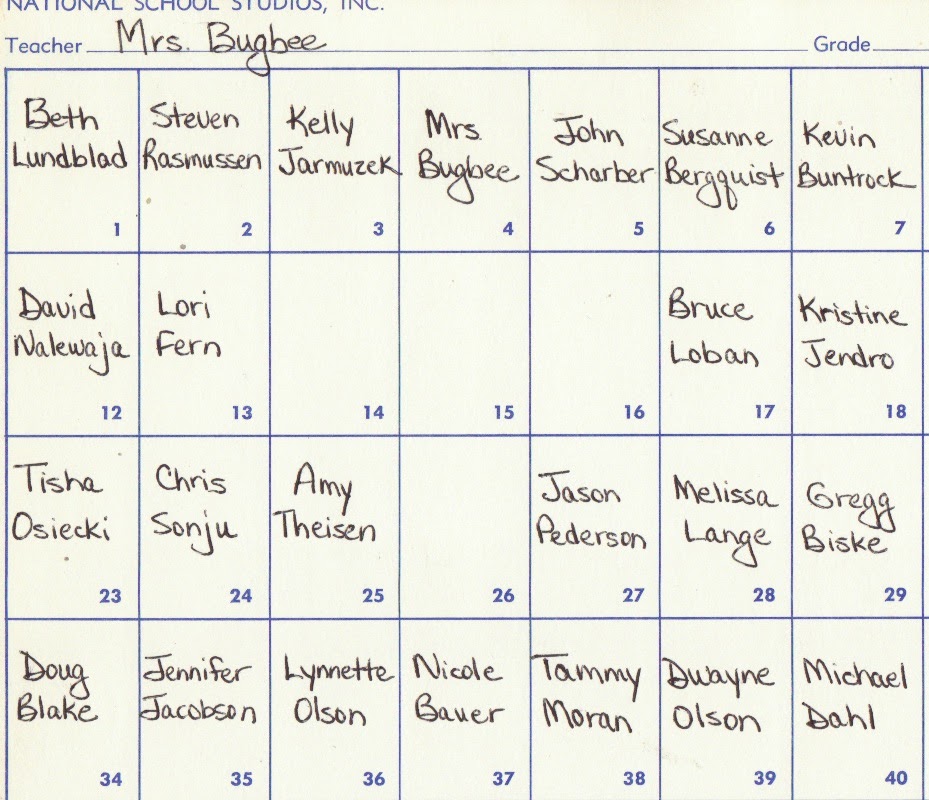 NATIONAL SCHOOL STUDIOS, INC.
Teacher Mrs. Bugbee Grade
Beth Lundblad 1
Steven Rasmussen 2
Kelly Jarmuzek 3
Mrs. Bugbee 4
John Scharber 5
Susanne Bergquist 6
Kevin Buntrock 7
David Nalewaja 12
Lori Fern 13
14
15
16
Bruce Loban 17
Kristine Jendro 18
Tisha Osiecki 23
Chris Sonju 24
Amy Theisen 25
26
Jason Pederson 27
Melissa Lange 28
Gregg Biske 29
Doug Blake 34
Jennifer Jacobson 35
Lynnette Olson 36
Nicole Bauer 37
Tammy Moran 38
Dwayne Olson 39
Michael Dahl 40